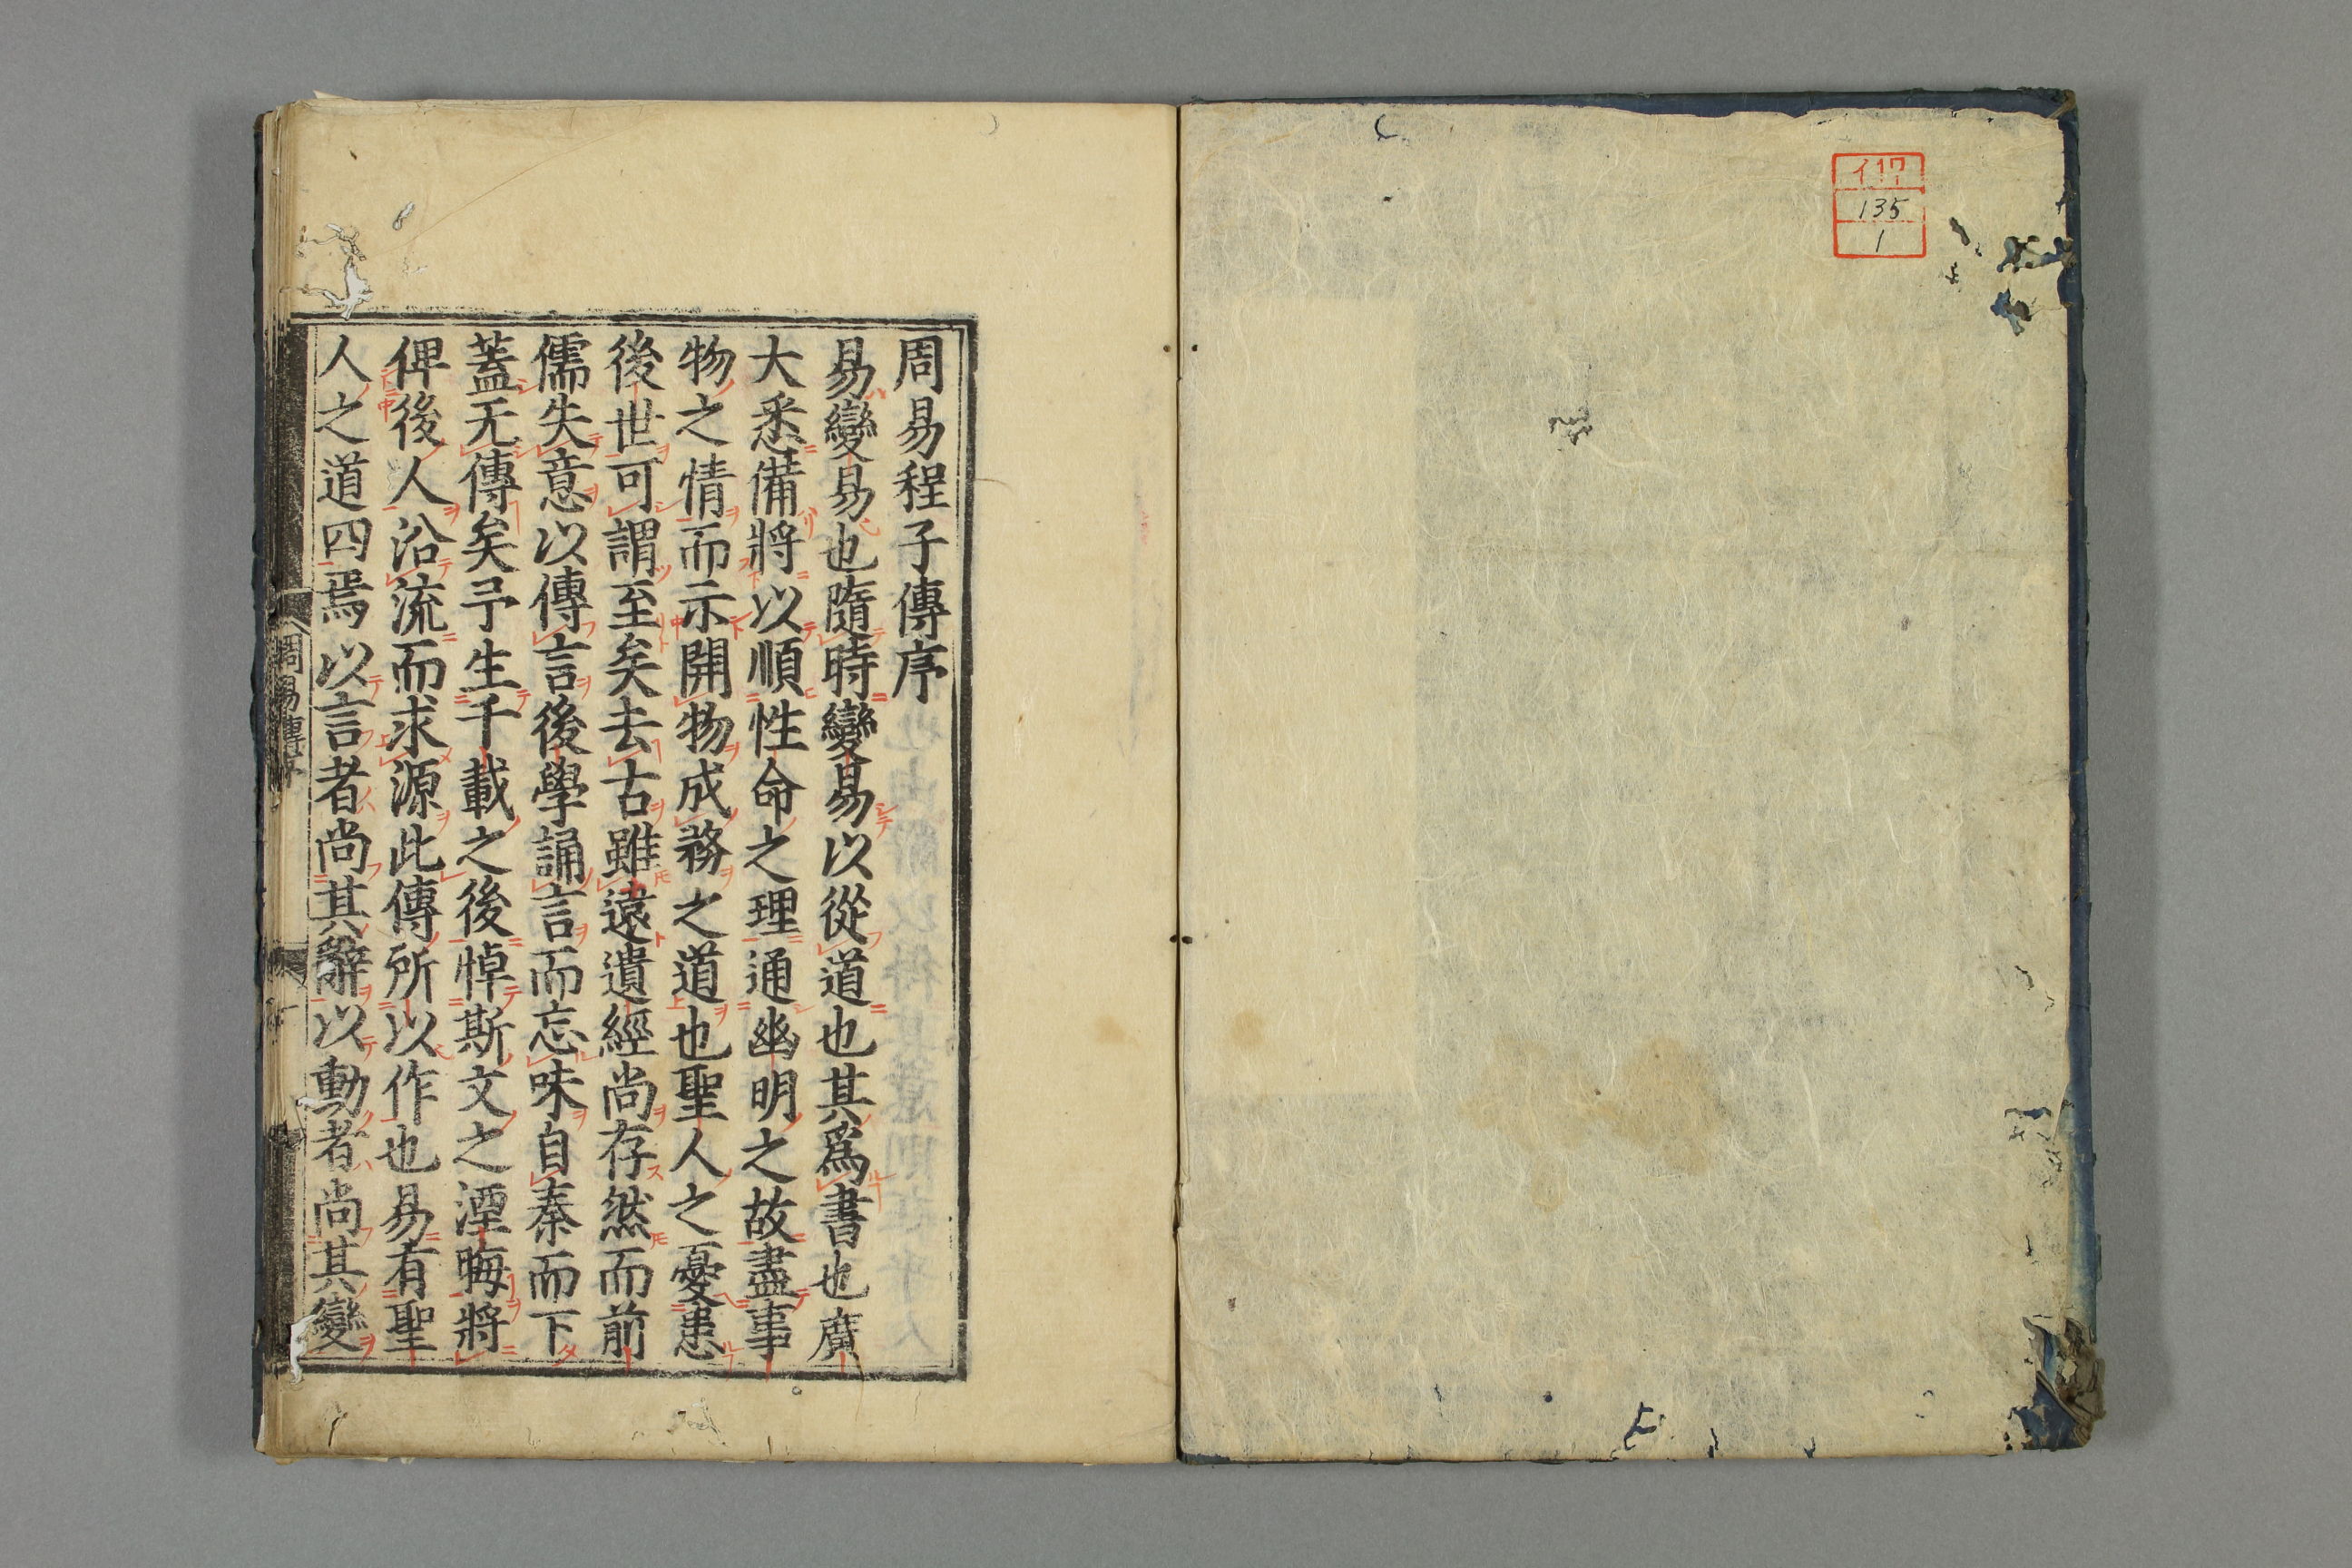 イ17
135
1
周易程子傳序
易變易也隨時變易以從道也其爲書也廣
大悉備將以順性命之理通幽明之故盡事
物之情而示開物成務之道也聖人之憂患
後世可謂至矣去古雖遠遺經尚存然而前
儒失意以傳言後學誦言而忘味自秦而下
蓋无傳矣予生千載之後悼斯文之湮晦將
俾後人沿流而求源此傳所以作也易有聖
人之道四焉以言者尚其辭以動者尚其變
周易傳序